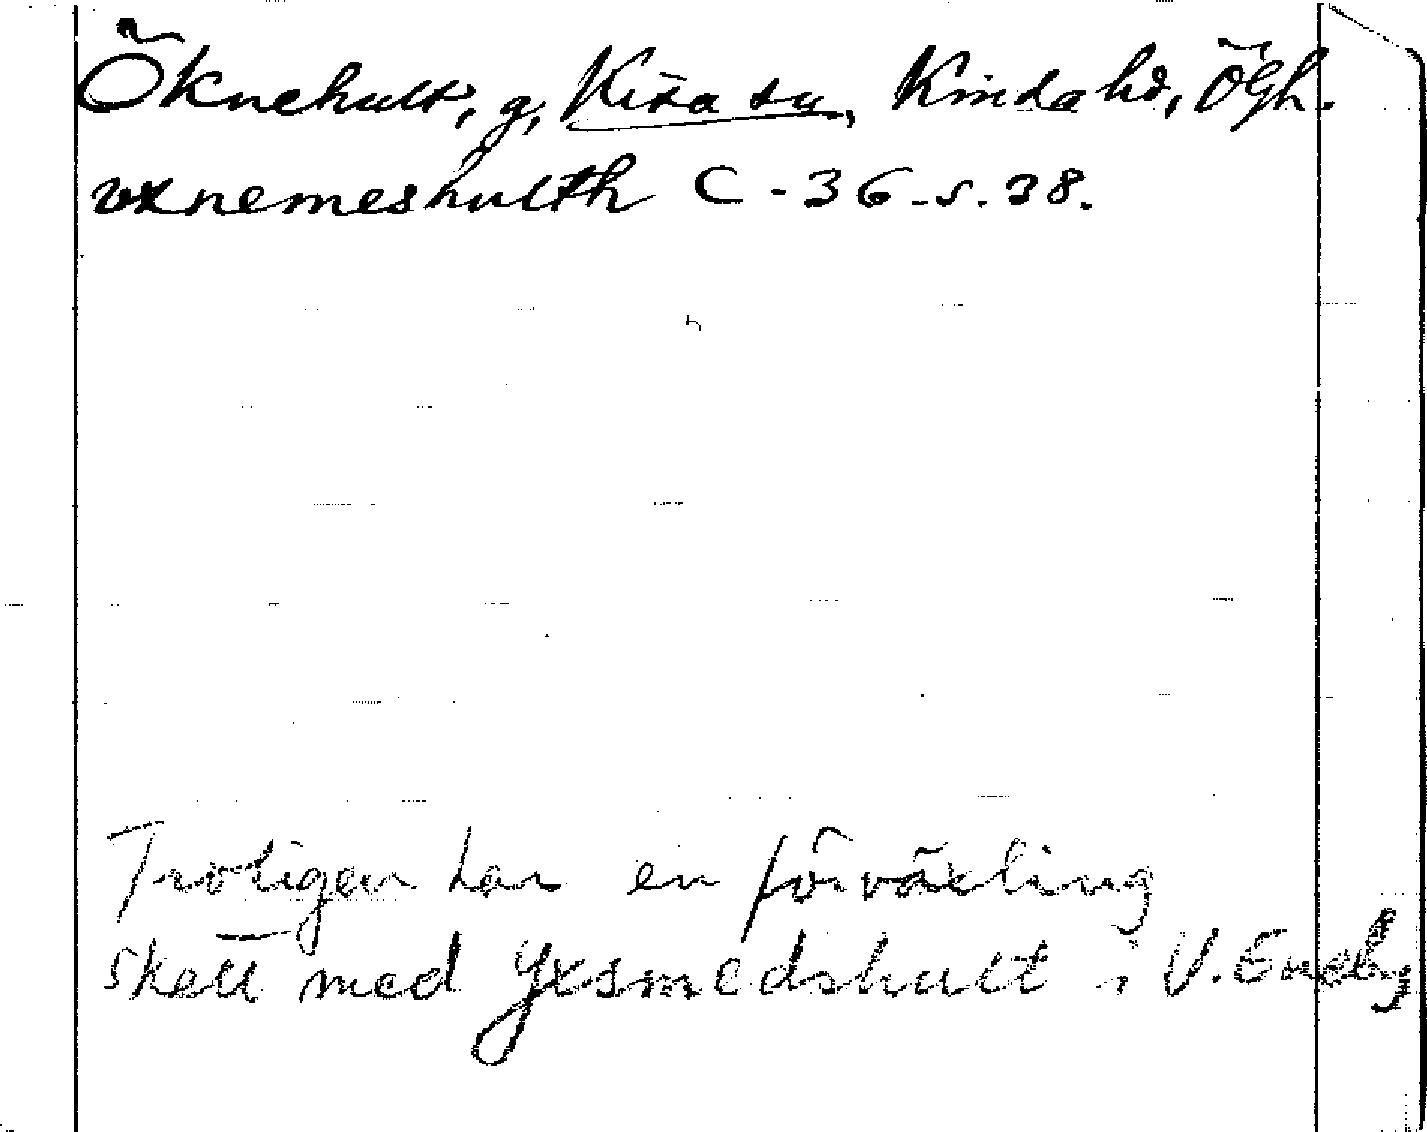 Öknehult, g, Kisa sn, Kinda hd, Ögh.
vxnemeshulth C-36-s.38.
Troligen har en förväxling
skett med Yxsmedshult i V. Eneby